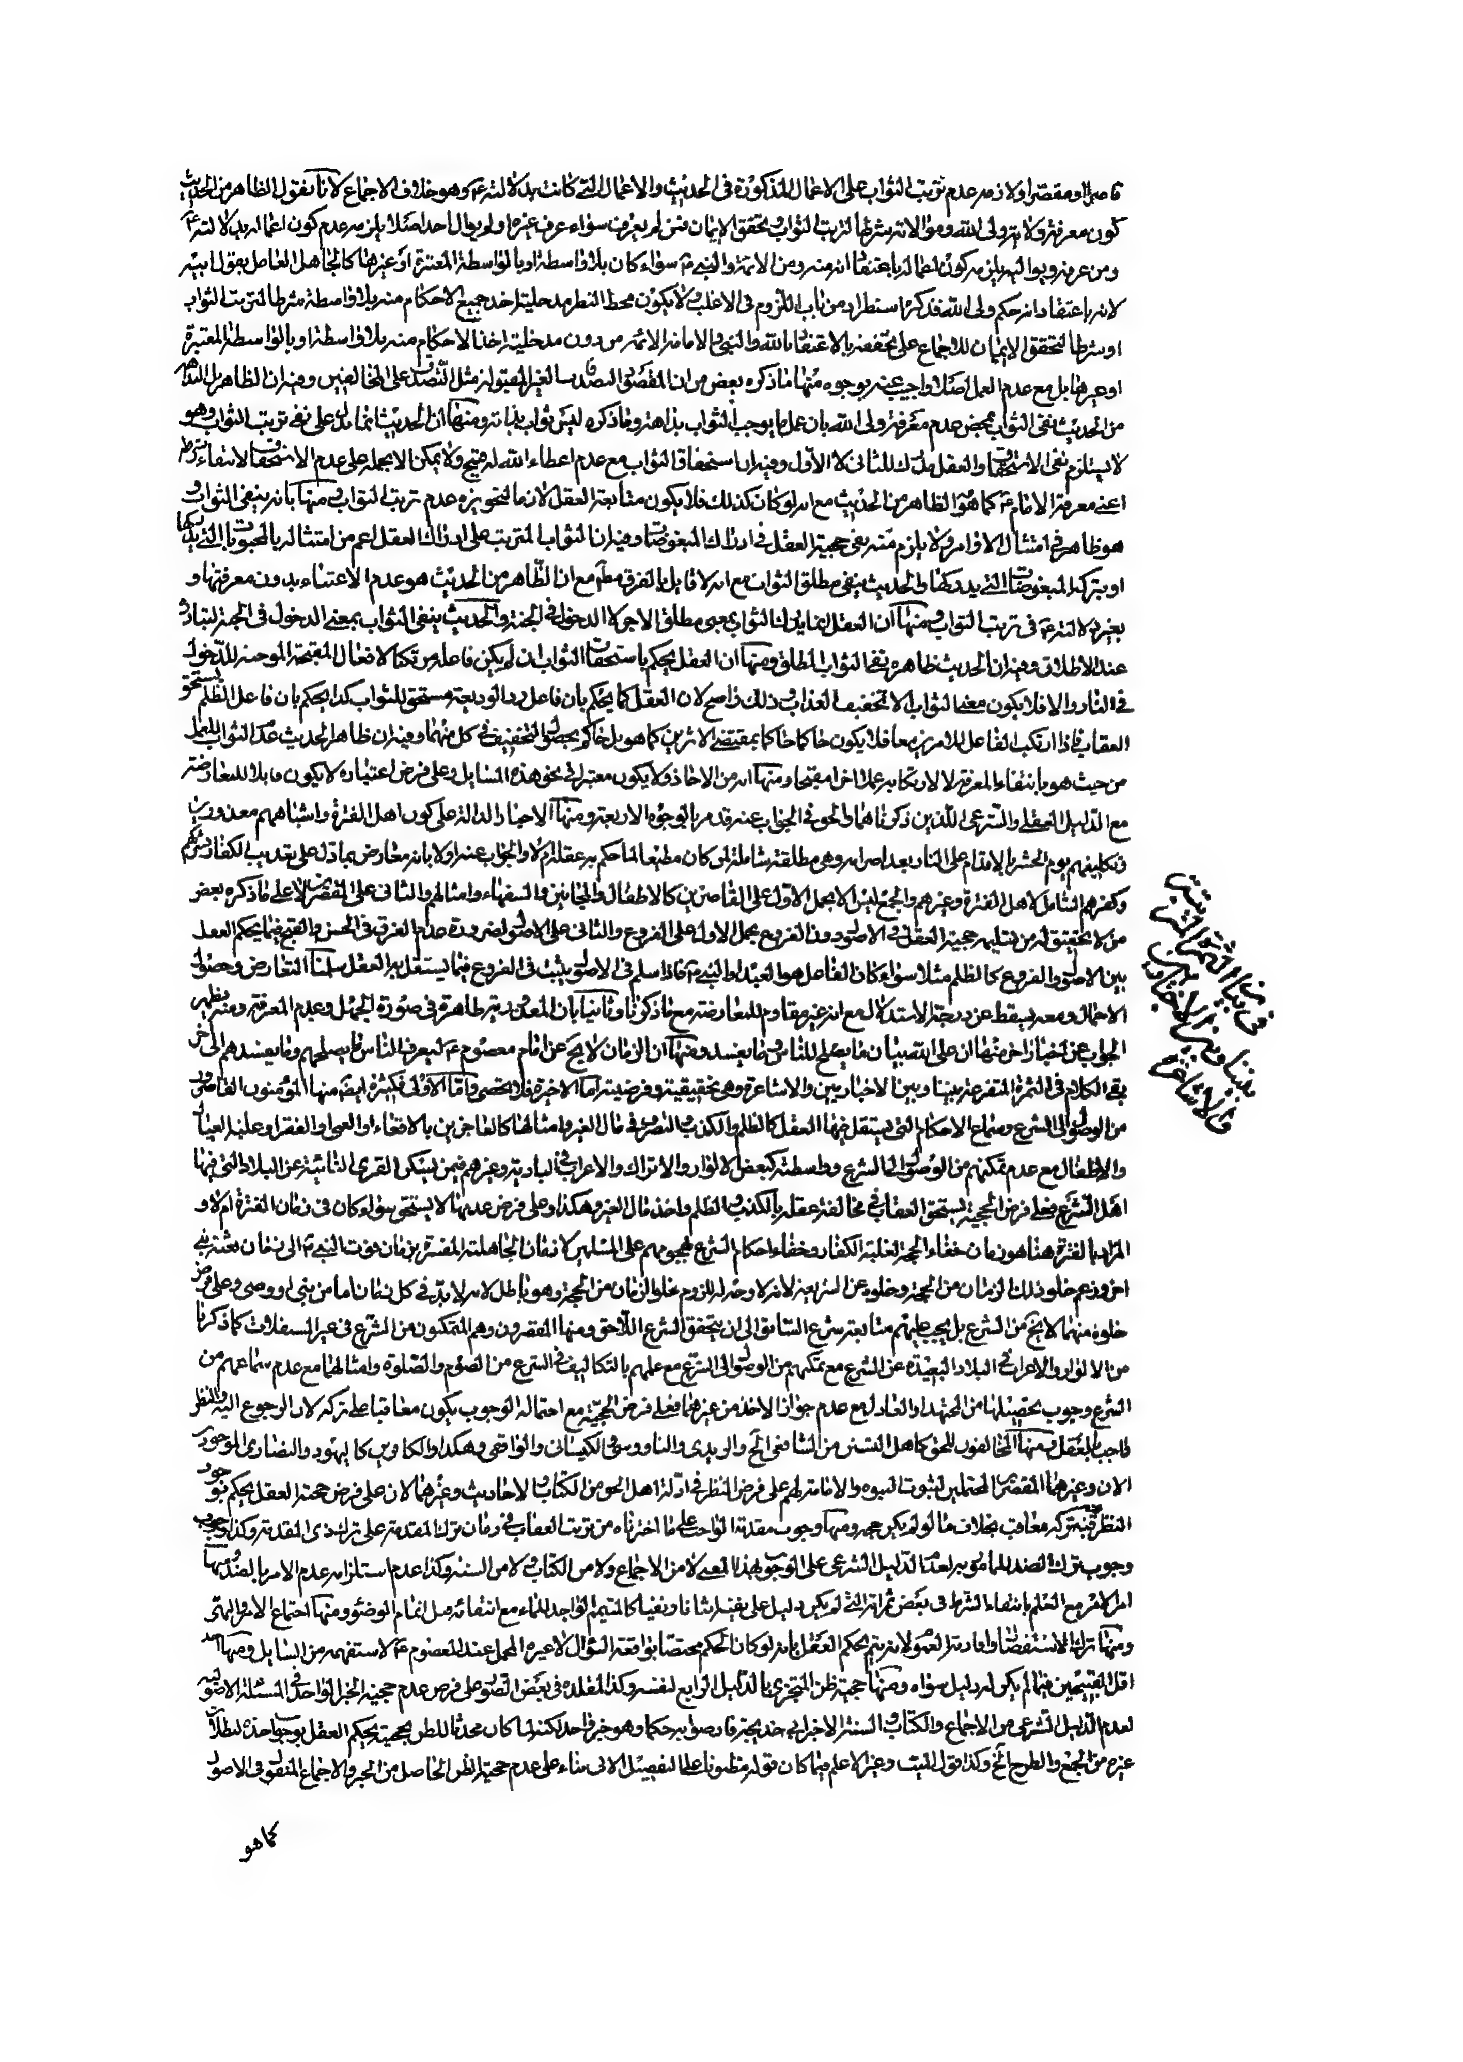 قاصرا او مقصرا ولازمه عدم ترتب الثواب على الاعمال المذكورة فى الحديث والاعمال التى كانت بدلالته ع وهو خلاف الاجماع لانا نقول الظاهر من الحديث
كون معرفة ولاية ولى الله وموالاته شرطا لترتب الثواب وتحقق الايمان فمن لم يعرف سواء عرف غيره او لم يوال احدا اصلا يلزمه عدم كون اعماله بدلالته ع
ومن عرفه ويواليه يلزمه كون اعماله باعتقاد انه منه ومن الائمة والنبى ص سواء كان بلا واسطة او بالواسطة المعتبرة او غيرها كالجاهل العامل بقول ابيه
لانه باعتقاد انه حكم ولى الله فذكره استطراد من باب اللزوم فى الاغلب ولا يكون محط النظر مدخلية اخذ جميع الاحكام منه بلا واسطة شرطا لترتب الثواب
او شرطا لتحقق الايمان للاجماع على تحققه بالاعتقاد بالله والنبى والامام الائمة من دون مدخلية اخذ الاحكام منه بلا واسطة او بالواسطة المعتبرة
او غيرها بل مع عدم العمل اصلا واجيب عنه بوجوه منها ما ذكره بعض من ان المقصود التصدقات الغير المقبولة مثل التصدق على المخالفين وفيه ان الظاهر بل الظاهر
من الحديث نفى الثواب بمحض عدم معرفة ولى الله بان عمل ما يوجب الثواب بذاته وما ذكره ليس ثواب بذاته ومنها ان الحديث انما يدل على نفى ترتب الثواب وهو
لا يستلزم نفى الاستحقاق والعقل مدرك للثانى لا الاول وفيه ان استحقاق الثواب مع عدم اعطاء الله له قبيح ولا يمكن الا بحمله على عدم الاستحقاق لانتفاء شرطه
اعنى معرفة الامام ع كما هو الظاهر من الحديث مع انه لو كان كذلك فلا يكون متابعة العقل لازما لتجويزه عدم ترتب الثواب ومنها بانه ينفى الثواب و
هو ظاهر فى امتثال الاوامر ولا يلزم منه نفى حجية العقل فى ادراك المبغوضات وفيه ان الثواب المترتب على ادراك العقل اعم من امتثاله بالمحبوبات التى يدركها
او بترك المبغوضات التى يدركها والحديث ينفى مطلق الثواب مع انه لا قايل بالفرق مع ان الظاهر من الحديث هو عدم الاعتناء بدون معرفتها و
بغير دلالته ع فى ترتب الثواب ومنها ان العقل انما يدرك الثواب بمعنى مطلق الاجر لا الدخول فى الجنة والحديث ينفى الثواب بمعنى الدخول فى الجنة لتبادره
عند الاطلاق وفيه ان الحديث ظاهره نفى الثواب المطلق ومنها ان العقل يحكم باستحقاق الثواب ان لم يكن فاعله مرتكبا لافعال المقبحة الموجبة للدخول
فى النار والا فلا يكون معنى الثواب الا تخفيف العذاب وذلك واضح لان العقل كما يحكم بان فاعل رد الوديعة مستحق للثواب كذا يحكم بان فاعل الظلم يستحق
العقاب فاذا ارتكب الفاعل للامرين معا فلا يكون حاكما بمقتضى الاثرين كما هو بل حاكم بحصول التخفيف فى كل منهما وفيه ان ظاهر الحديث عدم الثواب للعمل
من حيث هو بانتفاء المعرفة لا لارتكابه عملا اخر مقبحا ومنها انه من الاحاد ولا يكون معتبرا فى نحو هذه المسايل وعلى فرض اعتباره لا يكون قابلا للمعارضة
مع الدليل العقلى والشرعى اللذين ذكرناهما والحق فى الجواب عنه قد مر بالوجوه الاربعة ومنها الاخبار الدالة على كون اهل الفترة واشباههم معذورين
وتكليفهم يوم الحشر بالاقدام على النار بعد اضرامها وهى مطلقة شاملة لمن كان مطيعا لما حكم به عقله ام لا والجواب عنه اولا بانه معارض بما دل على تعذيب الكفار بشركهم
وكفرهم الشامل لاهل الفترة وغيرهم والجمع ليس الا بحمل الاول على القاصرين كالاطفال والمجانين والسفهاء وامثالهم والثانى على المقصرين لا على ما ذكره بعض
من لا تحقيق له من تسليمه حجية العقل فى الاصول دون الفروع بحمل الاول على الفروع والثانى على الاصول لضرورة عدم الفرق فى الحسن والقبح فيما يحكم العقل
بين الاصول والفروع كالظلم مثلا سواء كان الفاعل هو العبد او النبى ص فاذا سلم فى الاصول يثبت فى الفروع فيما يستقل به العقل سلمنا التعارض وحصول
الاحتمال ومعه يسقط عن درجة الاستدلال مع انه غير مقاوم للمعارضة مع ما ذكرنا وثانيا بان المعذورية ظاهرة فى صورة الجهل وعدم المعرفة ومنه يظهر
الجواب عن اخبار اخر منها ان على الله بيان ما يصلح للناس وما يفسد ومنها ان الزمان لا يخ عن امام معصوم ع ليعرف الناس ما يصلحهم وما يفسدهم الى اخر
بقى الكلام فى الثمرة المتفرعة بيننا وبين الاخباريين والاشاعرة وهى تحقيقية وفرضية اما الاخيرة فلا تحصى واما الاولى فكثيرة ايضا منها المؤمنون القاصرون
من الوصول الى الشرع وسماع الاحكام التى يستقل فيها العقل كالظلم والكذب والتصرف فى مال الغير وامثالها كالعاجزين بالاقعاء او العمى او الفقر او غلبة العيال
والاطفال مع عدم تمكنهم من الوصول الى الشرع وواسطته كبعض الالوار والاتراك والاعراب فى البادية وغيرهم فيمن يسكن القرى النائية عن البلاد التى فيها
اهل الشرع فعلى فرض الحجية يستحق العقاب فى مخالفة عقله بالكذب والظلم واخذ مال الغير وهكذا وعلى فرض عدمها لا يستحق سواء كان فى زمان الفترة ام لا و
المراد بالفترة هنا هو زمان خفاء الحجة لغلبة الكفار وخفاء احكام الشرع بهجومهم على المسلمين لا زمان الجاهلية المفسرة بزمان فوت النبى ص الى زمان بعثة نبى
اخر وزعم خلو ذلك الزمان من الحجة وخلوه عن الشريعة لانه لا وجه له للزوم خلو الزمان من الحجة وهو باطل لانه لا بد فى كل زمان اما من نبى او وصى وعلى فرض
خلوه منهما لا يخ من الشرع بل يجب عليهم متابعة شرع السابق الى ان يتحقق الشرع اللاحق ومنها المقصرون وهم المتمكنون من الشرع فى غير المستقلات كما ذكرنا
من الالوار والاعراب فى البلاد البعيدة عن الشرع مع تمكنهم من الوصول الى الشرع مع علمهم بالتكاليف فى الشرع من الصوم والصلوة وامثالها مع عدم سماعهم من
الشرع وجوب تحصيلها من المجتهد العادل مع عدم جواز الاخذ من غيرهما فعلى فرض الحجية مع احتمال الوجوب يكون معاقبا على تركه لان الرجوع اليه والنظر
واجب بالعقل ومنها المخالفون للحق كاهل التسنن من الشافعى الخ والزيدى والناووسى والكيسانى والواقفى وهكذا والكافرين كاليهود والنصارى الموجودين
الان وغيرهما المقصرين المحتملين لثبوت النبوة والامامة لهم على فرض النظر فى ادلة اهل الحق من الكتاب والاحاديث وغيرهما لان على فرض حجية العقل يحكم بوجوب
النظر فبتركه معاقب بخلاف ما لو لم يكن حجة ومنها وجوب مقدمة الواجب على ما اخترناه من ترتب العقاب فى زمان ترك المقدمة على ترك ذى المقدمة وكذا وجوب
وجوب ترك الضد للمامور به لعدم الدليل الشرعى على الوجوب بهذا المعنى لا من الاجماع ولا من الكتاب ولا من السنة وكذا عدم استلزامه عدم الامر بالضد ومنها
امر الامر مع العلم بانتفاء الشرط فى بعض ثمراته التى لم يكن دليل على نفيه اثباتا ونفيا كالمتيمم الواجد للماء مع انتفائه قبل اتمام الوضوء ومنها اجتماع الامر والنهى
ومنها ترك الاستفصال وافادته العموم لانه يتم بحكم العقل بانه لو كان الحكم مختصا بواقعة السؤال لا غيره المحمل عند المعصوم ع لاستفهمه من السايل ومنها اخذ
اقل القبيحين فيما لم يكن له دليل سواه ومنها حجية ظن المتجزى بالدليل الرابع لنفسه وكذا المقلده فى بعض الصور على فرض عدم حجية الخبر الواحد فى المسئلة الاصولية
لعدم الدليل الشرعى من الاجماع والكتاب والسنة الا خبر ابى خديجة فارضوا به حكما وهو خبر واحد لكنه لما كان محدثا للظن بحجيته يحكم العقل بوجوب اخذه لبطلان
غيره من الجمع والطرح الخ وكذا قول الميت وغير الاعلم فيما كان قوله مظنونا على التفصيل الاتى بناء على عدم حجية الظن الحاصل من الخبر والاجماع المنقول فى الاصول
كما هو
فى بيان الثمرة المترتبة
بيننا وبين الاخباريين
والاشاعرة